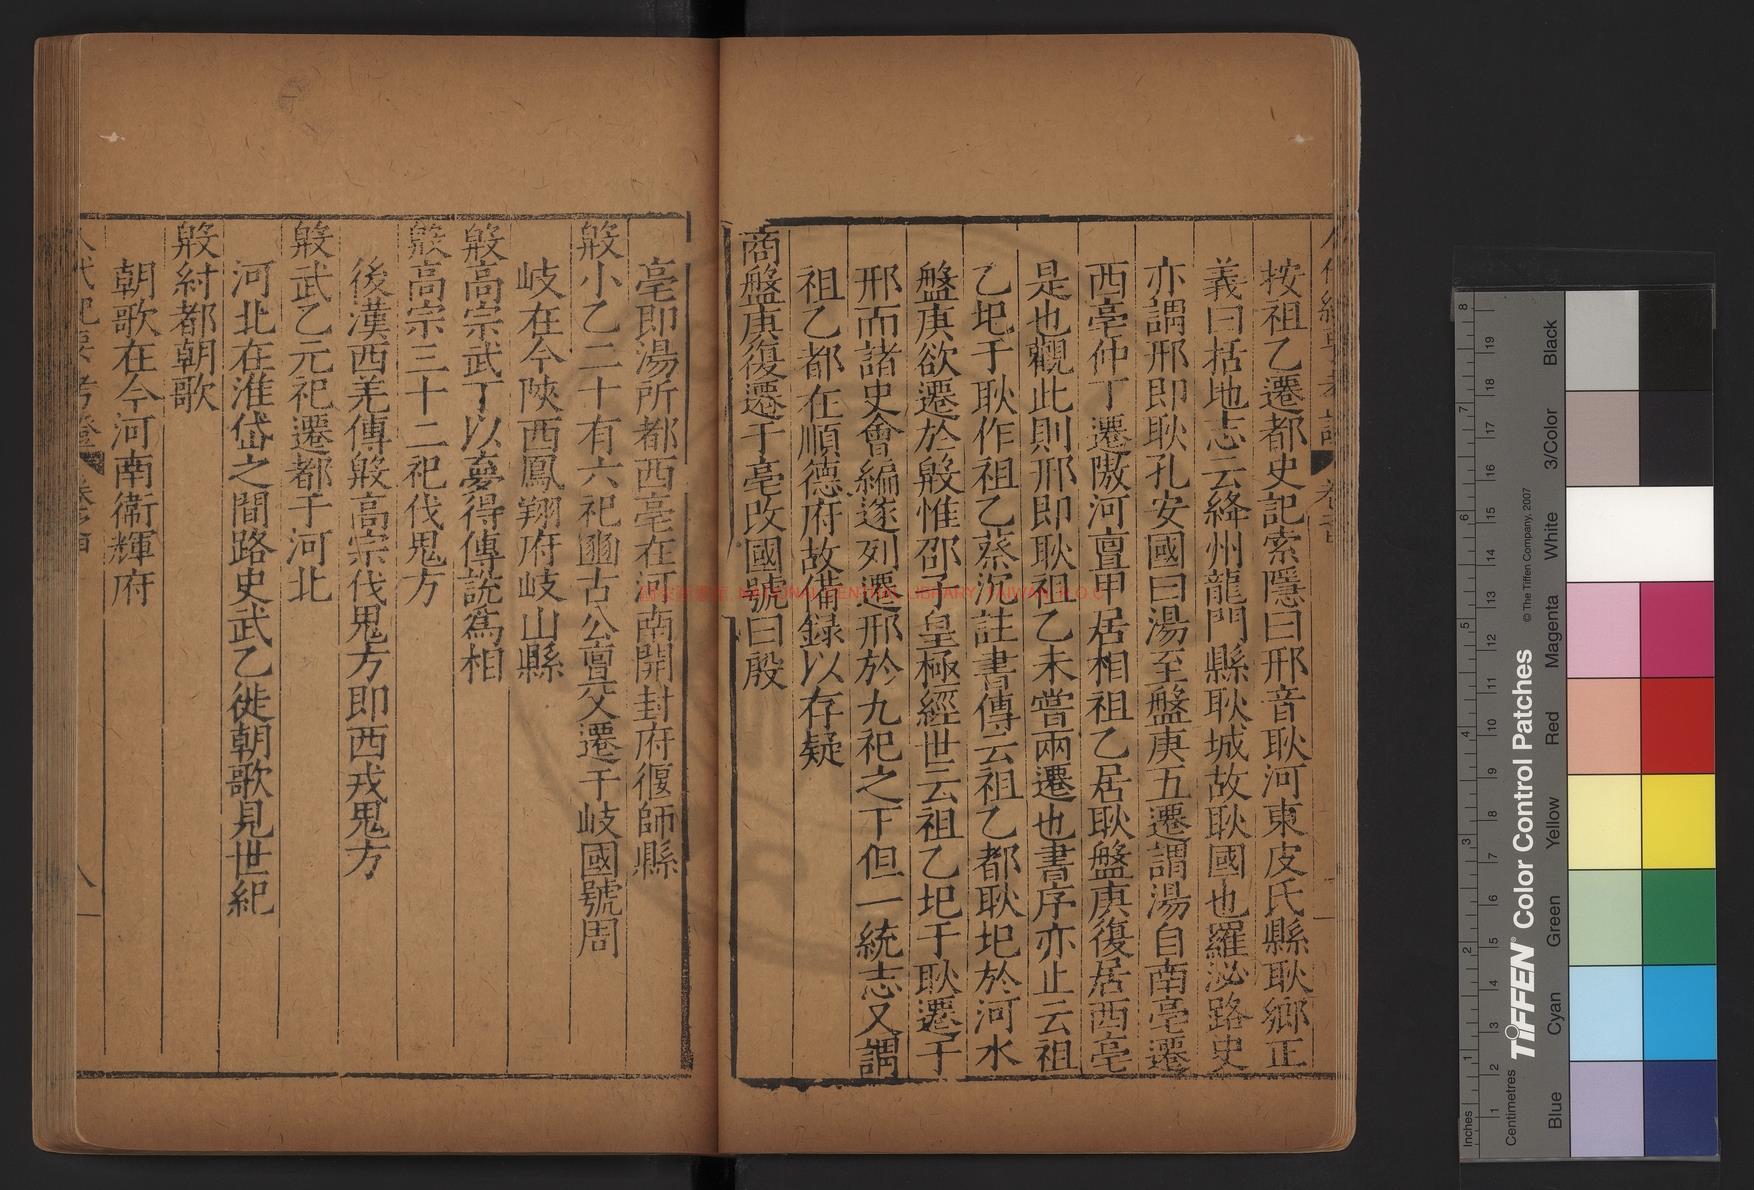 按祖乙遷都史記索隱曰邢音耿河東皮氏縣耿鄉正
義曰括地志云絳州龍門縣耿城故耿國也羅泌路史
亦謂邢即耿孔安國曰湯至盤庚五遷謂湯自南亳遷
西亳仲丁遷隞河亶甲居相祖乙居耿盤庚復居西亳
是也觀此則邢即耿祖乙未嘗兩遷也書序亦止云祖
乙圯于耿作祖乙蔡沉註書傳云祖乙都耿圯於河水
盤庚欲遷於殷惟邵子皇極經世云祖乙圯于耿遷于
邢而諸史會編遂列遷邢於九祀之下但一統志又謂
祖乙都在順德府故備録以存疑
商盤庚復遷于亳改國號曰殷
亳即湯所都西亳在河南開封府偃師縣
殷小乙二十有六祀豳古公亶父遷于岐國號周
岐在今陝西鳳翔府岐山縣
殷高宗武丁以夢得傅說爲相
殷高宗三十二祀伐鬼方
後漢西羌傳殷高宗伐鬼方即西戎鬼方
殷武乙元祀遷都于河北
河北在淮岱之間路史武乙徙朝歌見世紀
殷紂都朝歌
朝歌在今河南衞輝府
國家圖書館 NATIONAL CENTRAL LIBRARY, TAIWAN, R.O.C
TIFFEN® Color Control Patches
© The Tiffen Company, 2007
Inches
Centimetres
Blue
Cyan
Green
Yellow
Red
Magenta
White
3/Color
Black